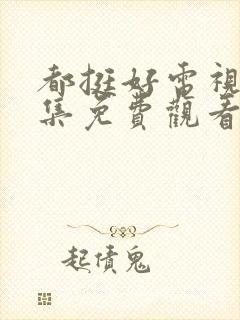 都挺好電視
集免費觀看
起債鬼